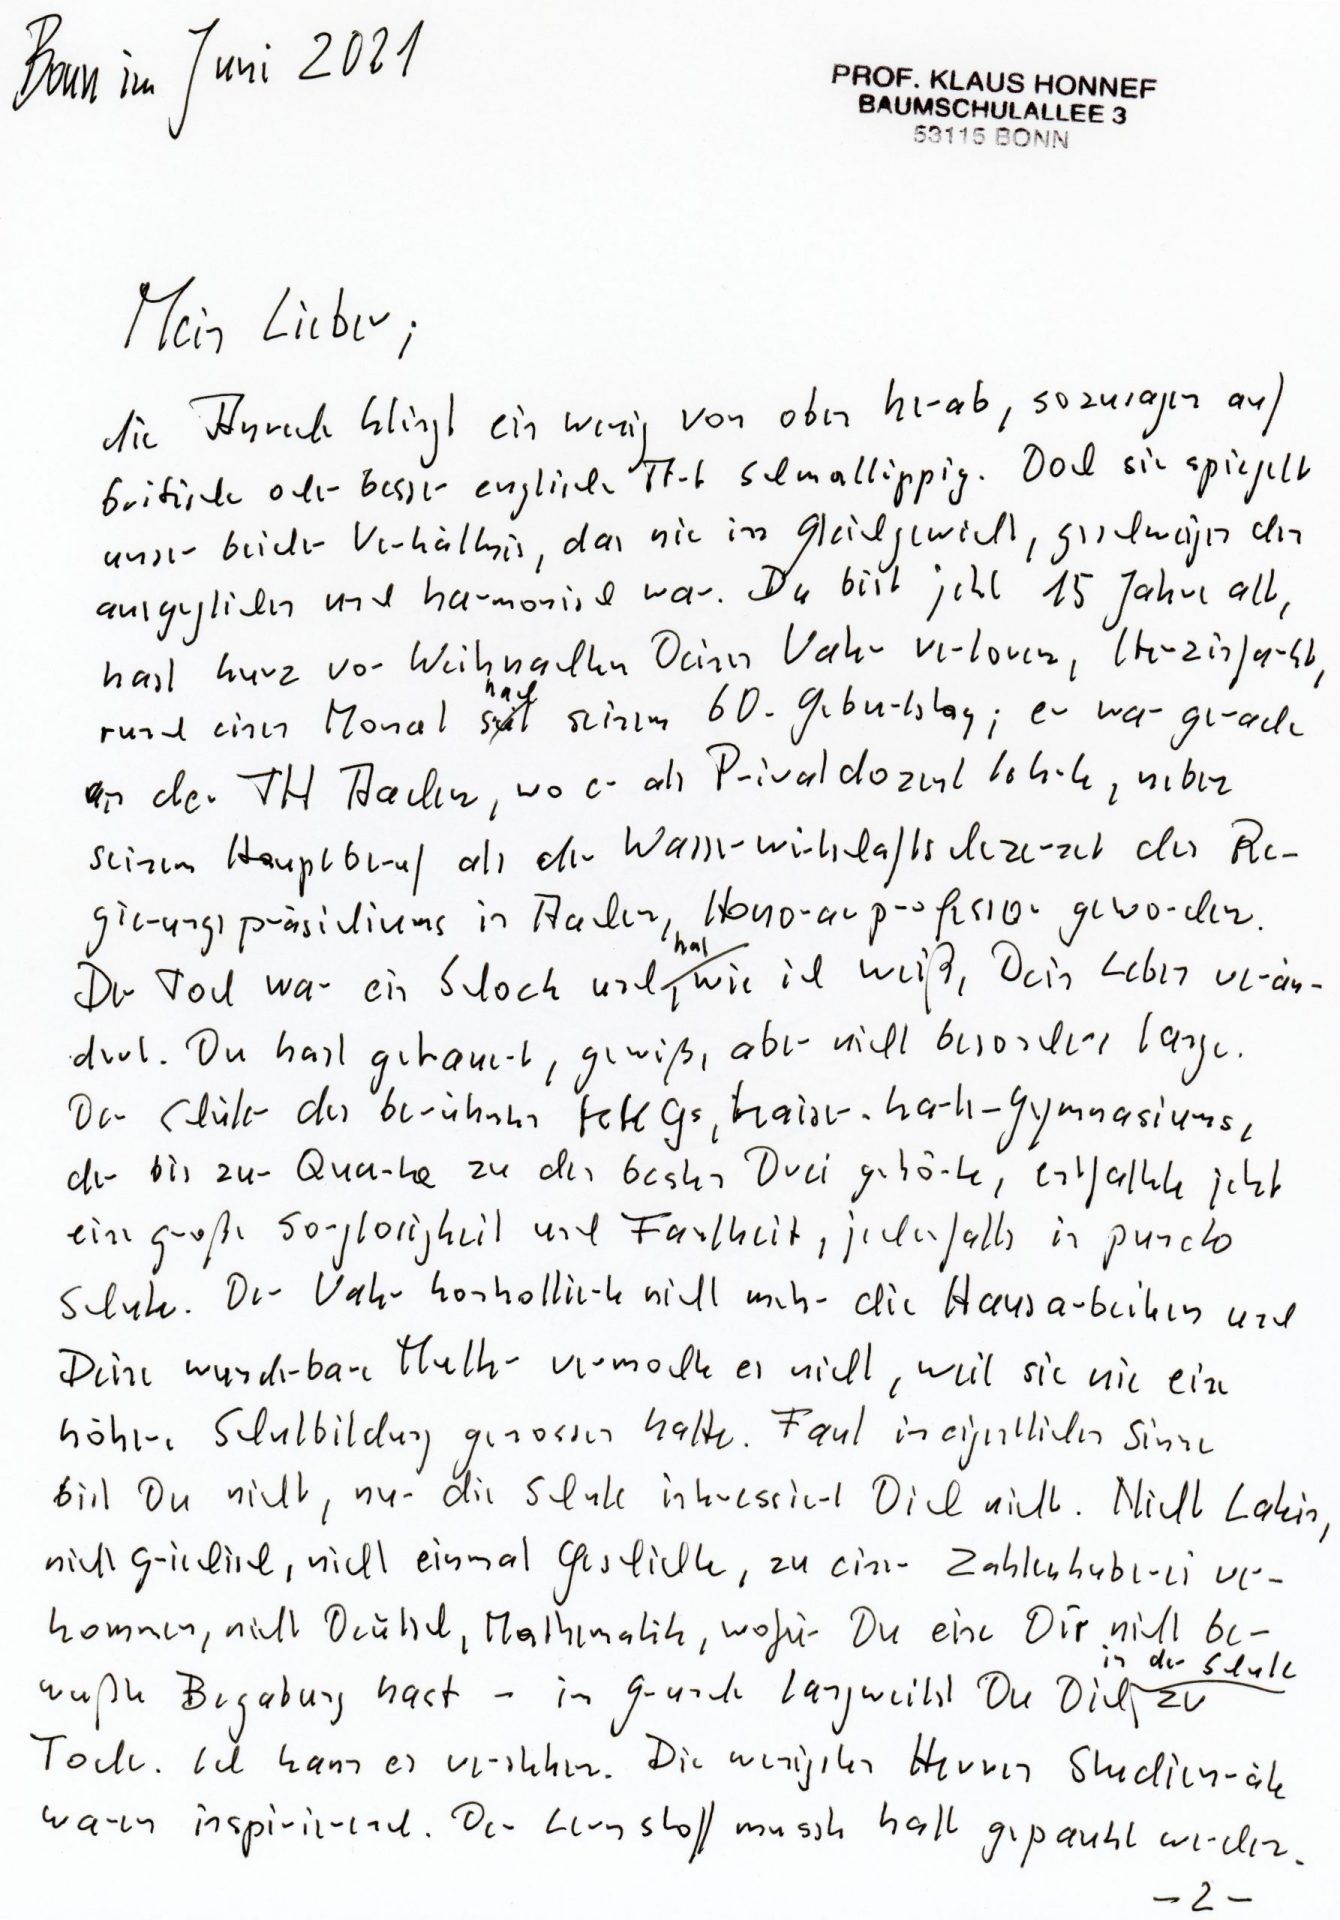 Bonn im Juni 2021
PROF. KLAUS HONNEF
BAUMSCHULALLEE 3
53115 BONN
Mein Lieber,
die Anrede klingt ein wenig von oben herab, sozusagen auf
britische oder besser englische Art schmallippig. Doch sie spiegelt
unser beider Verhältnis, das nie im Gleichgewicht, geschweige denn
ausgeglichen und harmonisch war. Du bist jetzt 15 Jahre alt,
hast kurz vor Weihnachten Deinen Vater verloren, Herzinfarkt,
rund einen Monat nach seinem 60. Geburtstag; er war gerade
an der TH Aachen, wo er als Privatdozent lehrte, neben
seinem Hauptberuf als der Wasserwirtschaftsdezernent des Re-
gierungspräsidiums in Aachen, Honorarprofessor geworden.
Der Tod war ein Schock und hat, wie ich weiß, Dein Leben verän-
dert. Du hast getrauert, gewiß, aber nicht besonders lange.
Der Schüler des berühmten KKGs, Kaiser-Karls-Gymnasiums,
der bis zur Quarta zu den besten Drei gehörte, entfaltete jetzt
eine große Sorglosigkeit und Faulheit, jedenfalls in puncto
Schule. Der Vater kontrollierte nicht mehr die Hausarbeiten und
Deine wunderbare Mutter vermochte es nicht, weil sie nie eine
höhere Schulbildung genossen hatte. Faul im eigentlichen Sinne
bist Du nicht, nur die Schule interessiert Dich nicht. Nicht Latein,
nicht Griechisch, nicht einmal Geschichte, zu einer Zahlenhuberei ver-
kommen, nicht Deutsch, Mathematik, wofür Du eine Dir nicht be-
wußte Begabung hast – im Grunde langweilst Du Dich in der Schule zu
Tode. Ich kann es verstehen. Die wenigsten Herren Studienräte
waren inspirierend. Der Lernstoff musste halt gepaukt werden.
- 2 -